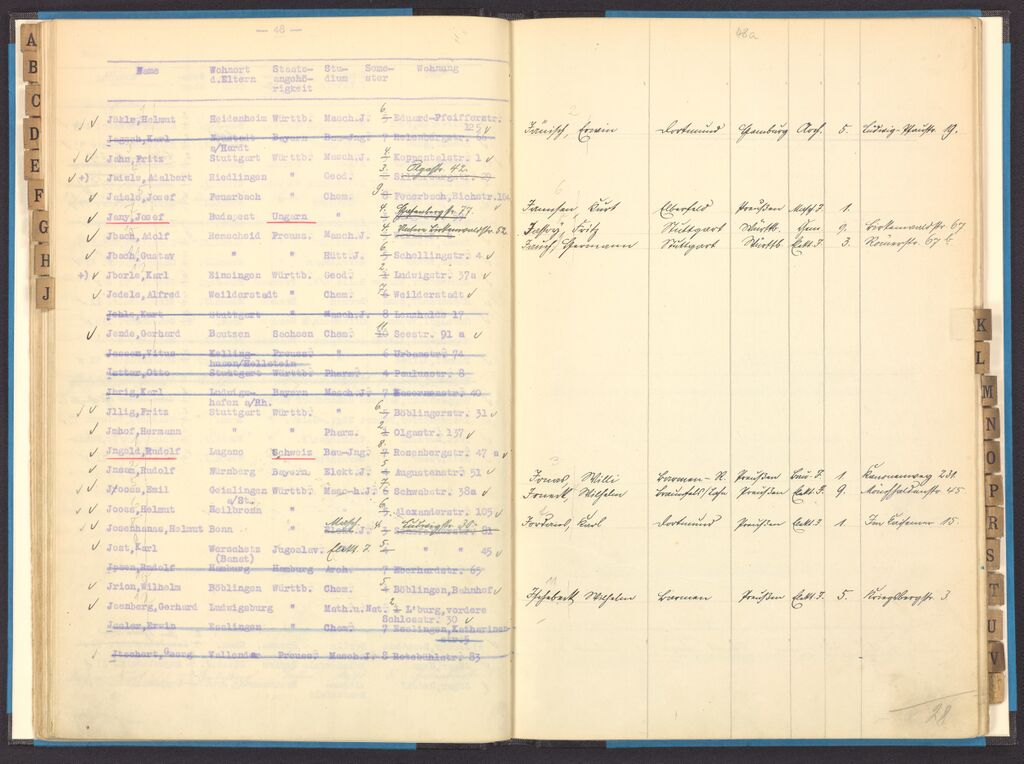 — 48 —
Name Wohnort Staats- Stu- Seme- Wohnung
d.Eltern angehö- dium ster
rigkeit
Jäkle,Helmut Heidenheim Württb. Masch.J. 6 Eduard-Pfeifferstr.
125
Jagsch,Karl Neustadt Bayern Bau-Ing. 7 Reinsburgstr.
a/Hardt
Jahn,Fritz Stuttgart Württb. Masch.J. 4 Koppentalstr. 1
Jaisle,Adalbert Riedlingen " Geod. 3. Olgastr. 42.
Jaisle,Josef Feuerbach " Chem. 9 Feuerbach,Eichstr.104
Jany,Josef Budapest Ungarn " 4
Jbach,Adolf Remscheid Preuss. " 4 Birkenwaldstr. 52
Jbach,Gustav " " Hütt.J. 6 Schellingstr. 4
Jborle,Karl Eimsingen Württb. Geod. 2 Ludwigstr. 37a
Jedele,Alfred Weilderstadt " Chem. 7 Weilderstadt
Jehle,Kurt Stuttgart " Masch.J. 8 Lenzhalde 17
Jende,Gerhard Bautzen Sachsen Chem. 11 Seestr. 91 a
Jessen,Vitus Kelling- Preuss. " 6 Urbanstr. 74
husen/Holstein
Jetter,Otto Stuttgart Württb. Pharm. 4 Paulusstr. 8
Jhrig,Karl Ludwigs- Bayern Masch.J. 7 Hasermanstr. 40
hafen a/Rh.
Jllig,Fritz Stuttgart Württb. " 6 Böblingerstr. 31
Jmhof,Hermann " " Pharm. 2 Olgastr. 137
Jngold,Rudolf Lugano Schweiz Bau-Jng. 8 Rosenbergstr. 47 a
Jnsam,Rudolf Nürnberg Bayern Elekt.J. 4 Augustenstr. 51
Jooss,Emil Geislingen Württb. Masch.J. 7 Schwabstr. 38a
a/St.
Jooss,Helmut Heilbronn " " 6 Alexanderstr. 105
Josenhans,Helmut Bonn " Masch. 4 Ludwigstr. 30.
Jost,Karl Werschetz Jugoslav. Elekt. J. 5 " " 45
(Banat)
Jpsen,Rudolf Hamburg Hamburg Arch. 7 Eberhardstr. 65
Jrion,Wilhelm Böblingen Württb. Chem. 5 Böblingen,Bahnhof
Jsenberg,Gerhard Ludwigsburg " Math.u.Nat. L'burg,vordere
Schlosstr. 30
Jssler,Erwin Esslingen " Chem. 7 Esslingen,Katharinen-
str.
Jtschert,Georg Vallendar Preuss. Masch.J. 8 Rotebühlstr. 83
48a
Jänisch, Erwin Dortmund Hamburg Arch. 5. Ludwig-Pfaustr. 19.
Janssen, Kurt Elberfeld Preußen Masch.J. 1.
Fritz Stuttgart Württb. Chem. 9. Birkenwaldstr 67
Hermann Stuttgart Württb Elekt.J. 3. Römerstr. 67 b
Jonas, Willi Barmen-R. Preußen Bau-J. 1 Kanonenweg 231.
Wilhelm Preußen Elekt.J. 9. 45
Jordans, Karl Dortmund Preußen Elekt.J. 1. 15.
Wilhelm Barmen Preußen Elekt.J. 5. Kriegsbergstr. 3
28
A
B
C
D
E
F
G
H
J
K
L
M
N
O
P
R
S
T
U
V